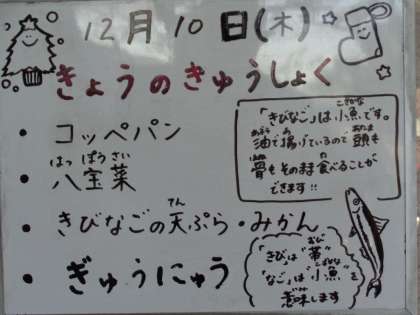 12月10日(木)
きょうのきゅうしょく
・コッペパン
・八宝菜
はっぽうさい
・きびなごの天ぷら・みかん
てん
・ぎゅうにゅう
「きびなご」は小魚です。
こざかな
油で揚げているので頭も
あぶら あ あたま
骨もそのまま食べることが
ほね た
できます!!
「きび」は"帯"
おび
「なご」は"小魚"を
こざかな
意味します